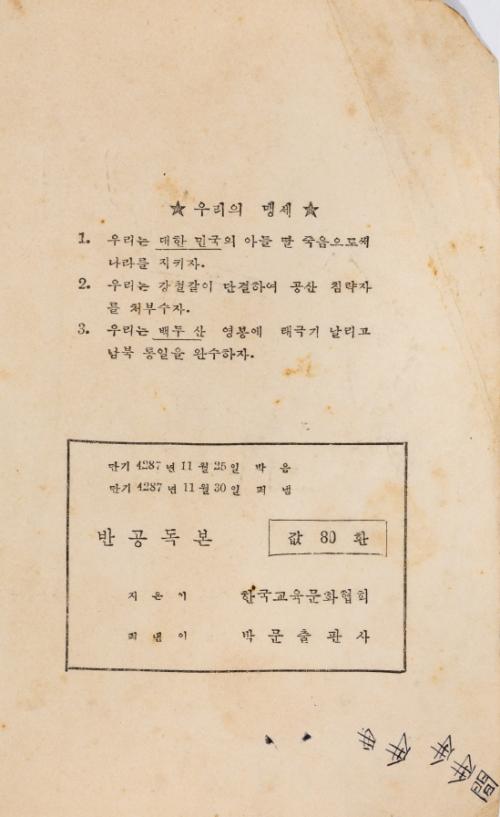 ★ 우리의 맹세 ★
1. 우리는 대한 민국의 아들 딸 죽음으로써
나라를 지키자.
2. 우리는 강철같이 단결하여 공산 침략자
를 쳐부수자.
3. 우리는 백두 산 영봉에 태국기 날리고
남북 통일을 완수하자.
단기 4287 년 11 월 25 일 박 음
단기 4287 년 11 월 30 일 펴 냄
반 공 독 본
값 80 환
지 은 이 한국교육문화협회
펴 낸 이 박 문 출 판 사